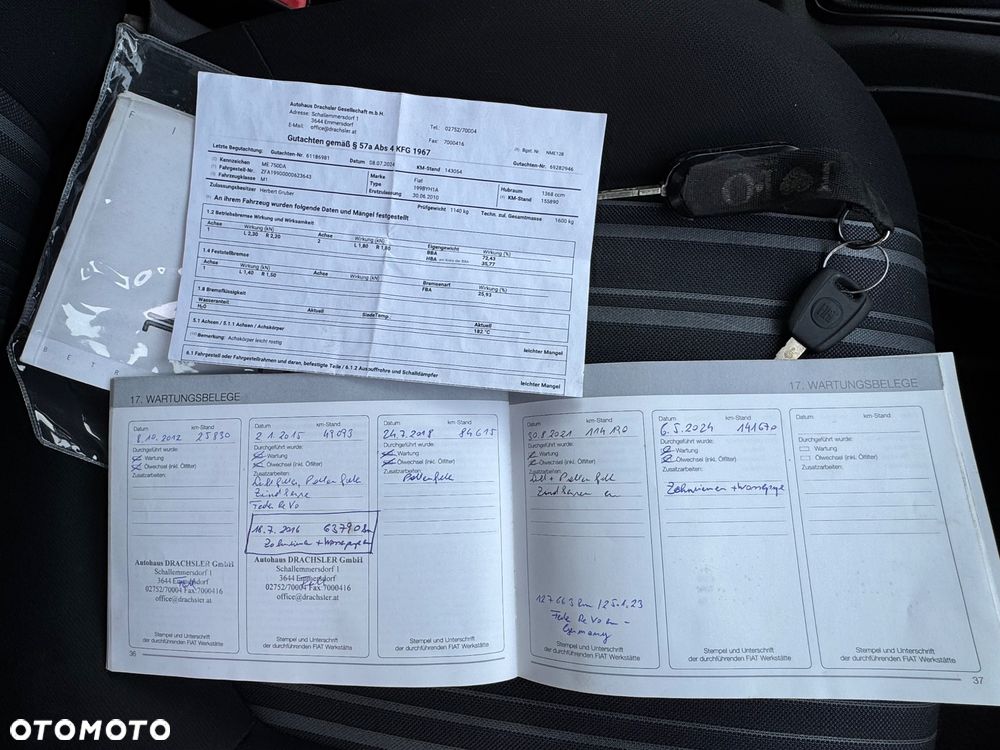 F I
B E T R
Autohaus Drachsler Gesellschaft m.b.H.
Adresse: Schallemmersdorf 1
3644 Emmersdorf
E-Mail: office@drachsler.at
Tel.: 02752/70004
Fax: 7000416
Gutachten gemäß § 57a Abs 4 KFG 1967
Bgst. Nr. NME128
Letzte Begutachtung: Gutachten-Nr. 61186981 Datum 08.07.2024 KM-Stand 143054 Gutachten-Nr. 69282946
Kennzeichen ME 750DA
Fahrgestell-Nr. ZFA19900000623643
Fahrzeugklasse M1
Marke Fiat
Type 199BYH1A
Erstzulassung 30.06.2010
Hubraum 1368 ccm
KM-Stand 155890
Zulassungsbesitzer Herbert Gruber
Prüfgewicht 1140 kg Techn. zul. Gesamtmasse 1600 kg
An ihrem Fahrzeug wurden folgende Daten und Mängel festgestellt
1.2 Betriebsbremse Wirkung und Wirksamkeit
Achse Wirkung (kN) Achse Wirkung (kN) Eigengewicht Wirkung (%)
1 L 2,30 R 2,20 2 L 1,80 R 1,80 BBA 72,43
HBA 35,77
1.4 Feststellbremse
Achse Wirkung (kN) Achse Wirkung (kN) Bremsenart Wirkung (%)
1 L 1,40 R 1,50 FBA 25,93
1.8 Bremsflüssigkeit
Wasseranteil Aktuell SiedeTemp. Aktuell
H₂O 182 °C
5.1 Achsen / 5.1.1 Achsen / Achskörper leichter Mangel
Bemerkung: Achskörper leicht rostig
6.1 Fahrgestell oder Fahrgestellrahmen und daran, befestigte Teile / 6.1.2 Auspuffrohre und Schalldämpfer leichter Mangel
17. WARTUNGSBELEGE
Datum km-Stand
8.10.2012 25830
Durchgeführt wurde:
Wartung
Ölwechsel (inkl. Ölfilter)
Zusatzarbeiten:
Autohaus DRACHSLER GmbH
Schallemmersdorf 1
3644 Emmersdorf
02752/70004 Fax 7000416
office@drachsler.at
Stempel und Unterschrift
der durchführenden FIAT Werkstätte
36
Datum km-Stand
2.1.2015 49093
Durchgeführt wurde:
Wartung
Ölwechsel (inkl. Ölfilter)
Zusatzarbeiten:
18.7.2016 63790 km
Zahnriemen + Wasserpumpe
Autohaus DRACHSLER GmbH
Schallemmersdorf 1
3644 Emmersdorf
02752/70004 Fax 7000416
office@drachsler.at
Stempel und Unterschrift
der durchführenden FIAT Werkstätte
Datum km-Stand
24.7.2018 84615
Durchgeführt wurde:
Wartung
Ölwechsel (inkl. Ölfilter)
Zusatzarbeiten:
Stempel und Unterschrift
der durchführenden FIAT Werkstätte
17. WARTUNGSBELEGE
Datum km-Stand
30.8.2021 114190
Durchgeführt wurde:
Wartung
Ölwechsel (inkl. Ölfilter)
Zusatzarbeiten:
127663 km / 25.1.23
Stempel und Unterschrift
der durchführenden FIAT Werkstätte
Datum km-Stand
6.5.2024 141670
Durchgeführt wurde:
Wartung
Ölwechsel (inkl. Ölfilter)
Zusatzarbeiten:
Zahnriemen + Wasserpumpe
Stempel und Unterschrift
der durchführenden FIAT Werkstätte
Datum km-Stand
Durchgeführt wurde:
Wartung
Ölwechsel (inkl. Ölfilter)
Zusatzarbeiten:
Stempel und Unterschrift
der durchführenden FIAT Werkstätte
37
OTOMOTO